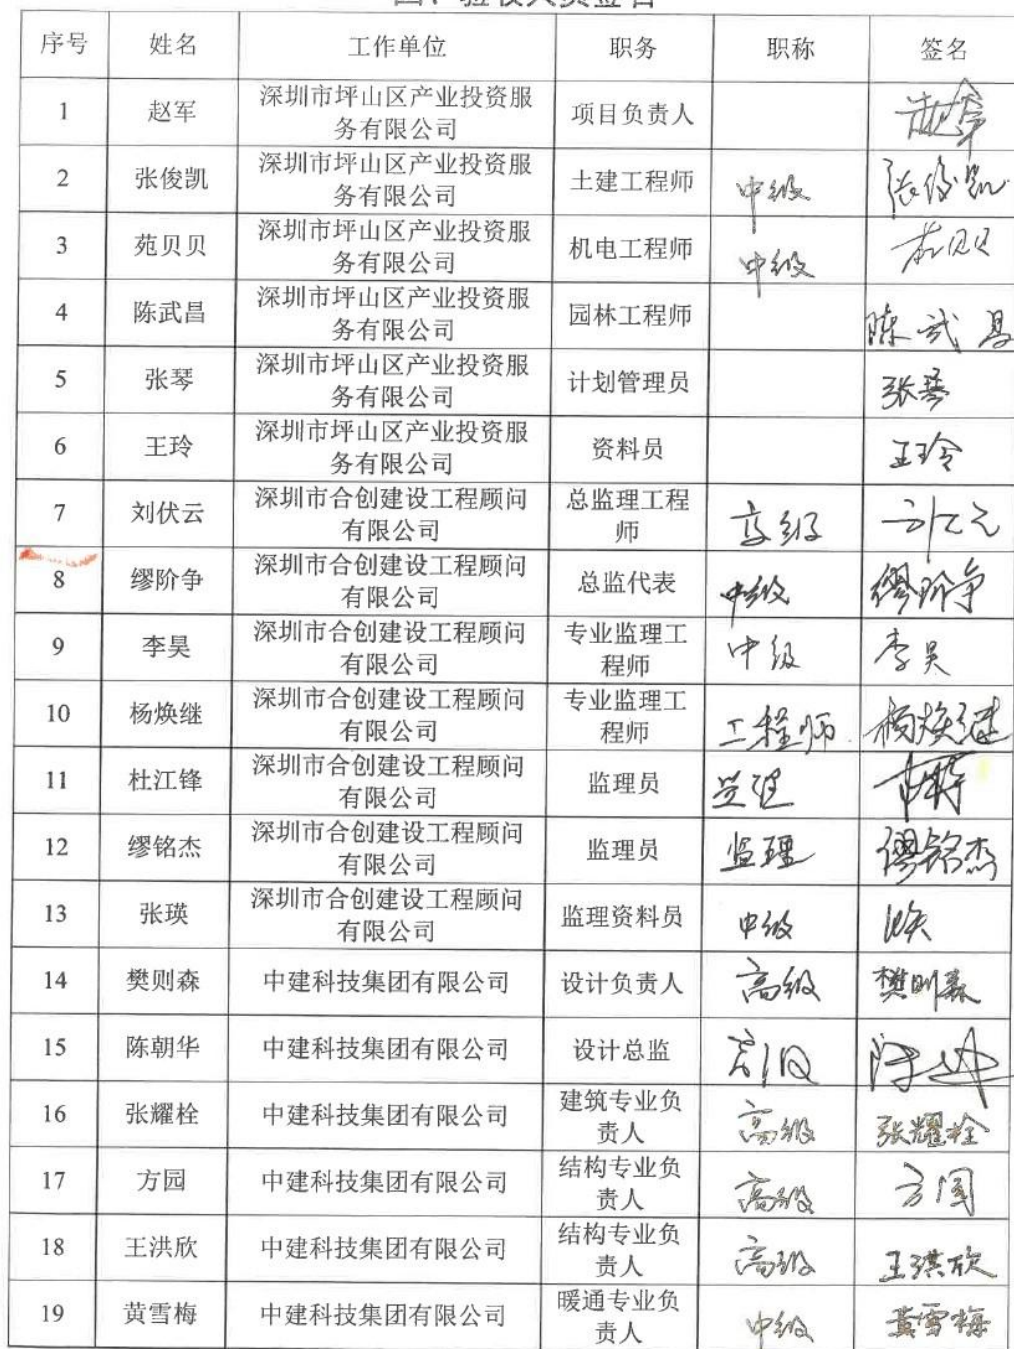 四、验收人员签名
序号 姓名 工作单位 职务 职称 签名
1 赵军 深圳市坪山区产业投资服务有限公司 项目负责人 赵军
2 张俊凯 深圳市坪山区产业投资服务有限公司 土建工程师 中级 张俊凯
3 苑贝贝 深圳市坪山区产业投资服务有限公司 机电工程师 中级 苑贝贝
4 陈武昌 深圳市坪山区产业投资服务有限公司 园林工程师 陈武昌
5 张琴 深圳市坪山区产业投资服务有限公司 计划管理员 张琴
6 王玲 深圳市坪山区产业投资服务有限公司 资料员 王玲
7 刘伏云 深圳市合创建设工程顾问有限公司 总监理工程师 高级
8 缪阶争 深圳市合创建设工程顾问有限公司 总监代表 中级 缪阶争
9 李昊 深圳市合创建设工程顾问有限公司 专业监理工程师 中级 李昊
10 杨焕继 深圳市合创建设工程顾问有限公司 专业监理工程师 工程师 杨焕继
11 杜江锋 深圳市合创建设工程顾问有限公司 监理员
12 缪铭杰 深圳市合创建设工程顾问有限公司 监理员 监理 缪铭杰
13 张瑛 深圳市合创建设工程顾问有限公司 监理资料员 中级
14 樊则森 中建科技集团有限公司 设计负责人 高级 樊则森
15 陈朝华 中建科技集团有限公司 设计总监
16 张耀栓 中建科技集团有限公司 建筑专业负责人 高级 张耀栓
17 方园 中建科技集团有限公司 结构专业负责人 高级 方园
18 王洪欣 中建科技集团有限公司 结构专业负责人 高级 王洪欣
19 黄雪梅 中建科技集团有限公司 暖通专业负责人 中级 黄雪梅